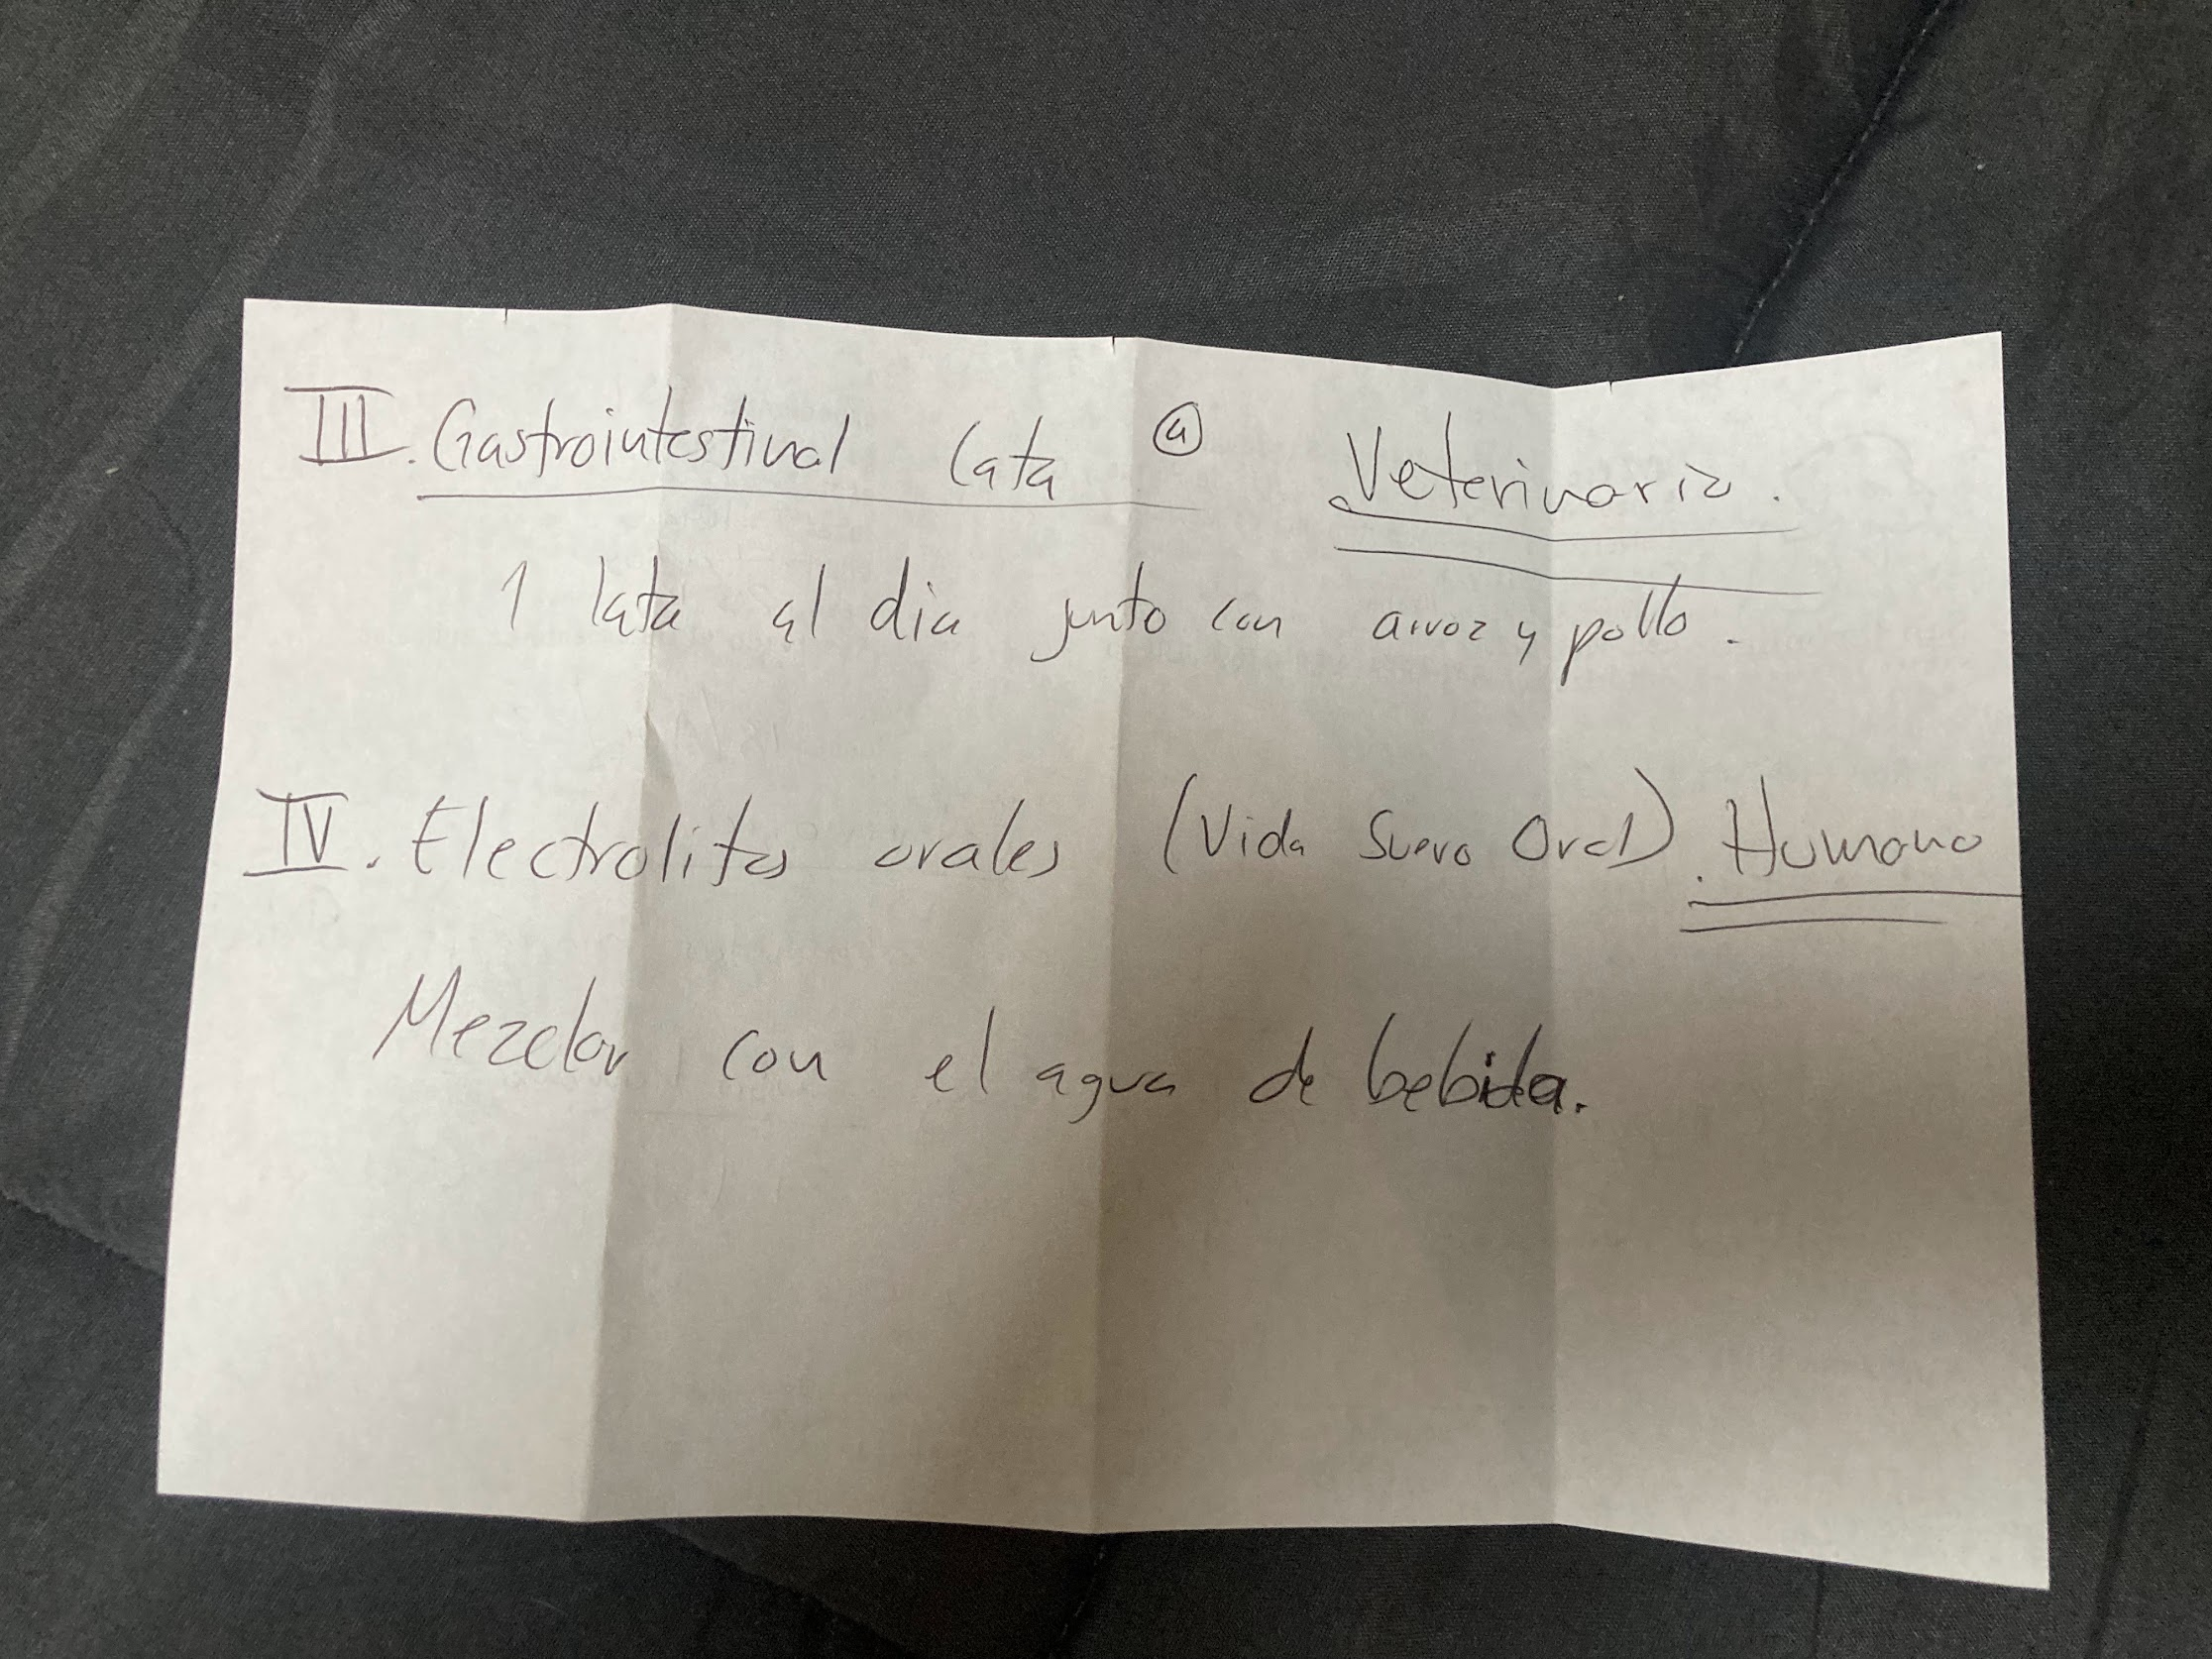 III. Gastrointestinal lata ④ Veterinaria.
1 lata al dia junto con arroz y pollo.
IV. Electrolitos orales (Vida Suero Oral). Humano
Mezclar con el agua de bebida.